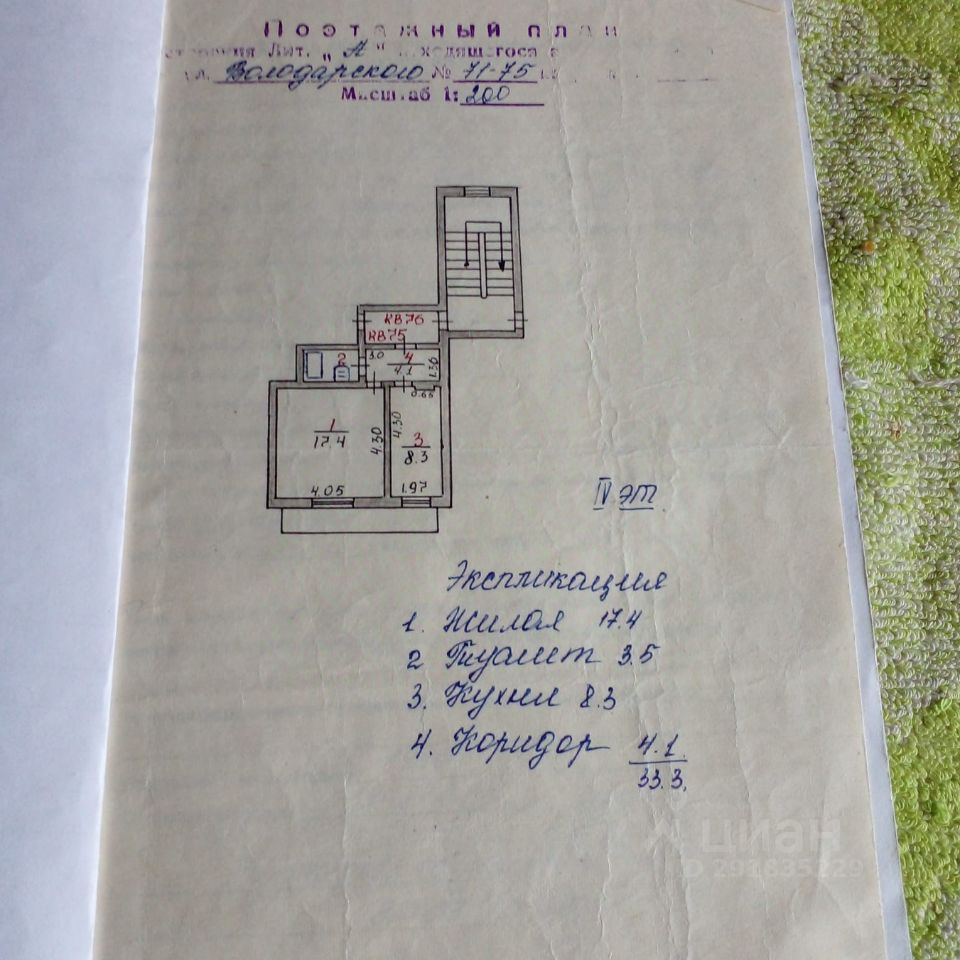 Поэтажный план
Лит. „А“
Володарского № 71-75
Масштаб 1: 200
кв 76
кв 75
2
3.0
4
4.1
1.36
0.65
1
17.4
4.30
4.30
3
8.3
4.05
1.97
IV эт
Экспликация
1. Жилая 17.4
2 Туалет 3.5
3. Кухня 8.3
4. Коридор 4.1.
33.3.
циан
ID 291835229